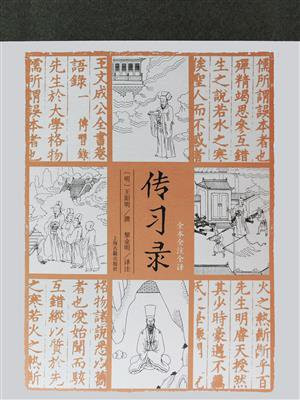 儒所謂誤本者也
殫精竭思參互錯
生之說若水之寒
俟聖人而不惑
王文成公全書卷
語錄一 傳習錄
先生於大學格物
儒所謂誤本者也
全本全注全译
传习录
[明]王阳明/撰 黎业明/译注
上海古籍出版社
火之熱斷斷
先生明睿天授然
其少時豪邁不羈
格物諸說悉以舊
也愛始聞而駭
互錯縱以質於先
之寒若火之熱斷